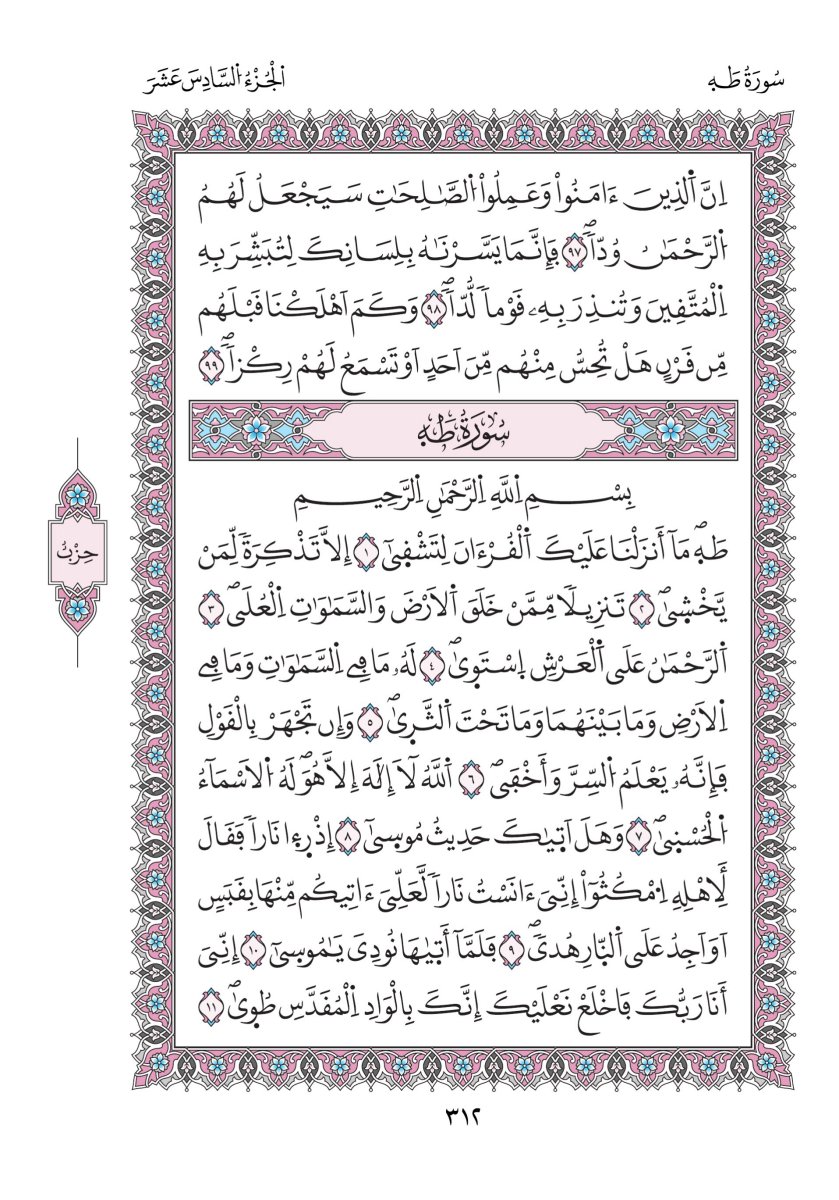 سُورَةُ طَهِ
اَلْجُزْءُ اُلسَّادِسَ عَشَرَ
اِنَّ اَ۬لذِينَ ءَامَنُواْ وَعَمِلُواْ اُ۬لصَّٰلِحَٰتِ سَيَجْعَلُ لَهُمُ
اُ۬لرَّحْمَٰنُ وُدّاٗۖ ٩٧ فَإِنَّمَا يَسَّرْنَٰهُ بِلِسَانِكَ لِتُبَشِّرَ بِهِ
اِ۬لْمُتَّقِينَ وَتُنذِرَ بِهِۦ قَوْماٗ لُّدّاٗۖ ٩٨ وَكَمَ اَهْلَكْنَا قَبْلَهُم
مِّن قَرْنٍ هَلْ تُحِسُّ مِنْهُم مِّنَ اَحَدٍ اَوْ تَسْمَعُ لَهُمْ رِكْزاٗۖ ٩٩
سُورَةُ طَهِ
بِسْمِ اِ۬للَّهِ اِ۬لرَّحْمَٰنِ اِ۬لرَّحِيمِ
حِزْبٌ
طَهِۖ مَآ أَنزَلْنَا عَلَيْكَ اَ۬لْقُرْءَانَ لِتَشْقۭيٰٓ ١ إِلَّا تَذْكِرَةٗ لِّمَنْ
يَّخْشۭيٰۖ ٢ تَنزِيلاٗ مِّمَّنْ خَلَقَ اَ۬لَارْضَ وَالسَّمَٰوَٰتِ اِ۬لْعُلَىۖ ٣
اَ۬لرَّحْمَٰنُ عَلَى اَ۬لْعَرْشِ اِ۪سْتَوۭيٰۖ ٤ لَهُۥ مَا فِے اِ۬لسَّمَٰوَٰتِ وَمَا فِے
اِ۬لَارْضِ وَمَا بَيْنَهُمَا وَمَا تَحْتَ اَ۬لثَّرۭيٰۖ ٥ وَإِن تَجْهَرْ بِالْقَوْلِ
فَإِنَّهُۥ يَعْلَمُ اُ۬لسِّرَّ وَأَخْفَىۖ ٦ اَ۬للَّهُ لَآ إِلَٰهَ إِلَّا هُوَۖ لَهُ اُ۬لَاسْمَآءُ
اُ۬لْحُسْنۭيٰۖ ٧ وَهَلَ اَتۭيٰكَ حَدِيثُ مُوسۭيٰٓ ٨ إِذْ رَءۭا نَاراٗ فَقَالَ
لِأَهْلِهِ اِ۟مْكُثُوٓاْ إِنِّيَ ءَانَسْتُ نَاراٗ لَّعَلِّيَ ءَاتِيكُم مِّنْهَا بِقَبَسٍ
اَوَ اَجِدُ عَلَى اَ۬لنّ۪ارِ هُدىٗۖ ٩ فَلَمَّآ أَتۭيٰهَا نُودِيَ يَٰمُوسۭيٰٓ ١٠ إِنِّيَ
أَنَا رَبُّكَ فَاخْلَعْ نَعْلَيْكَ إِنَّكَ بِالْوَادِ اِ۬لْمُقَدَّسِ طُوۭيٰۖ ١١
٣١٢